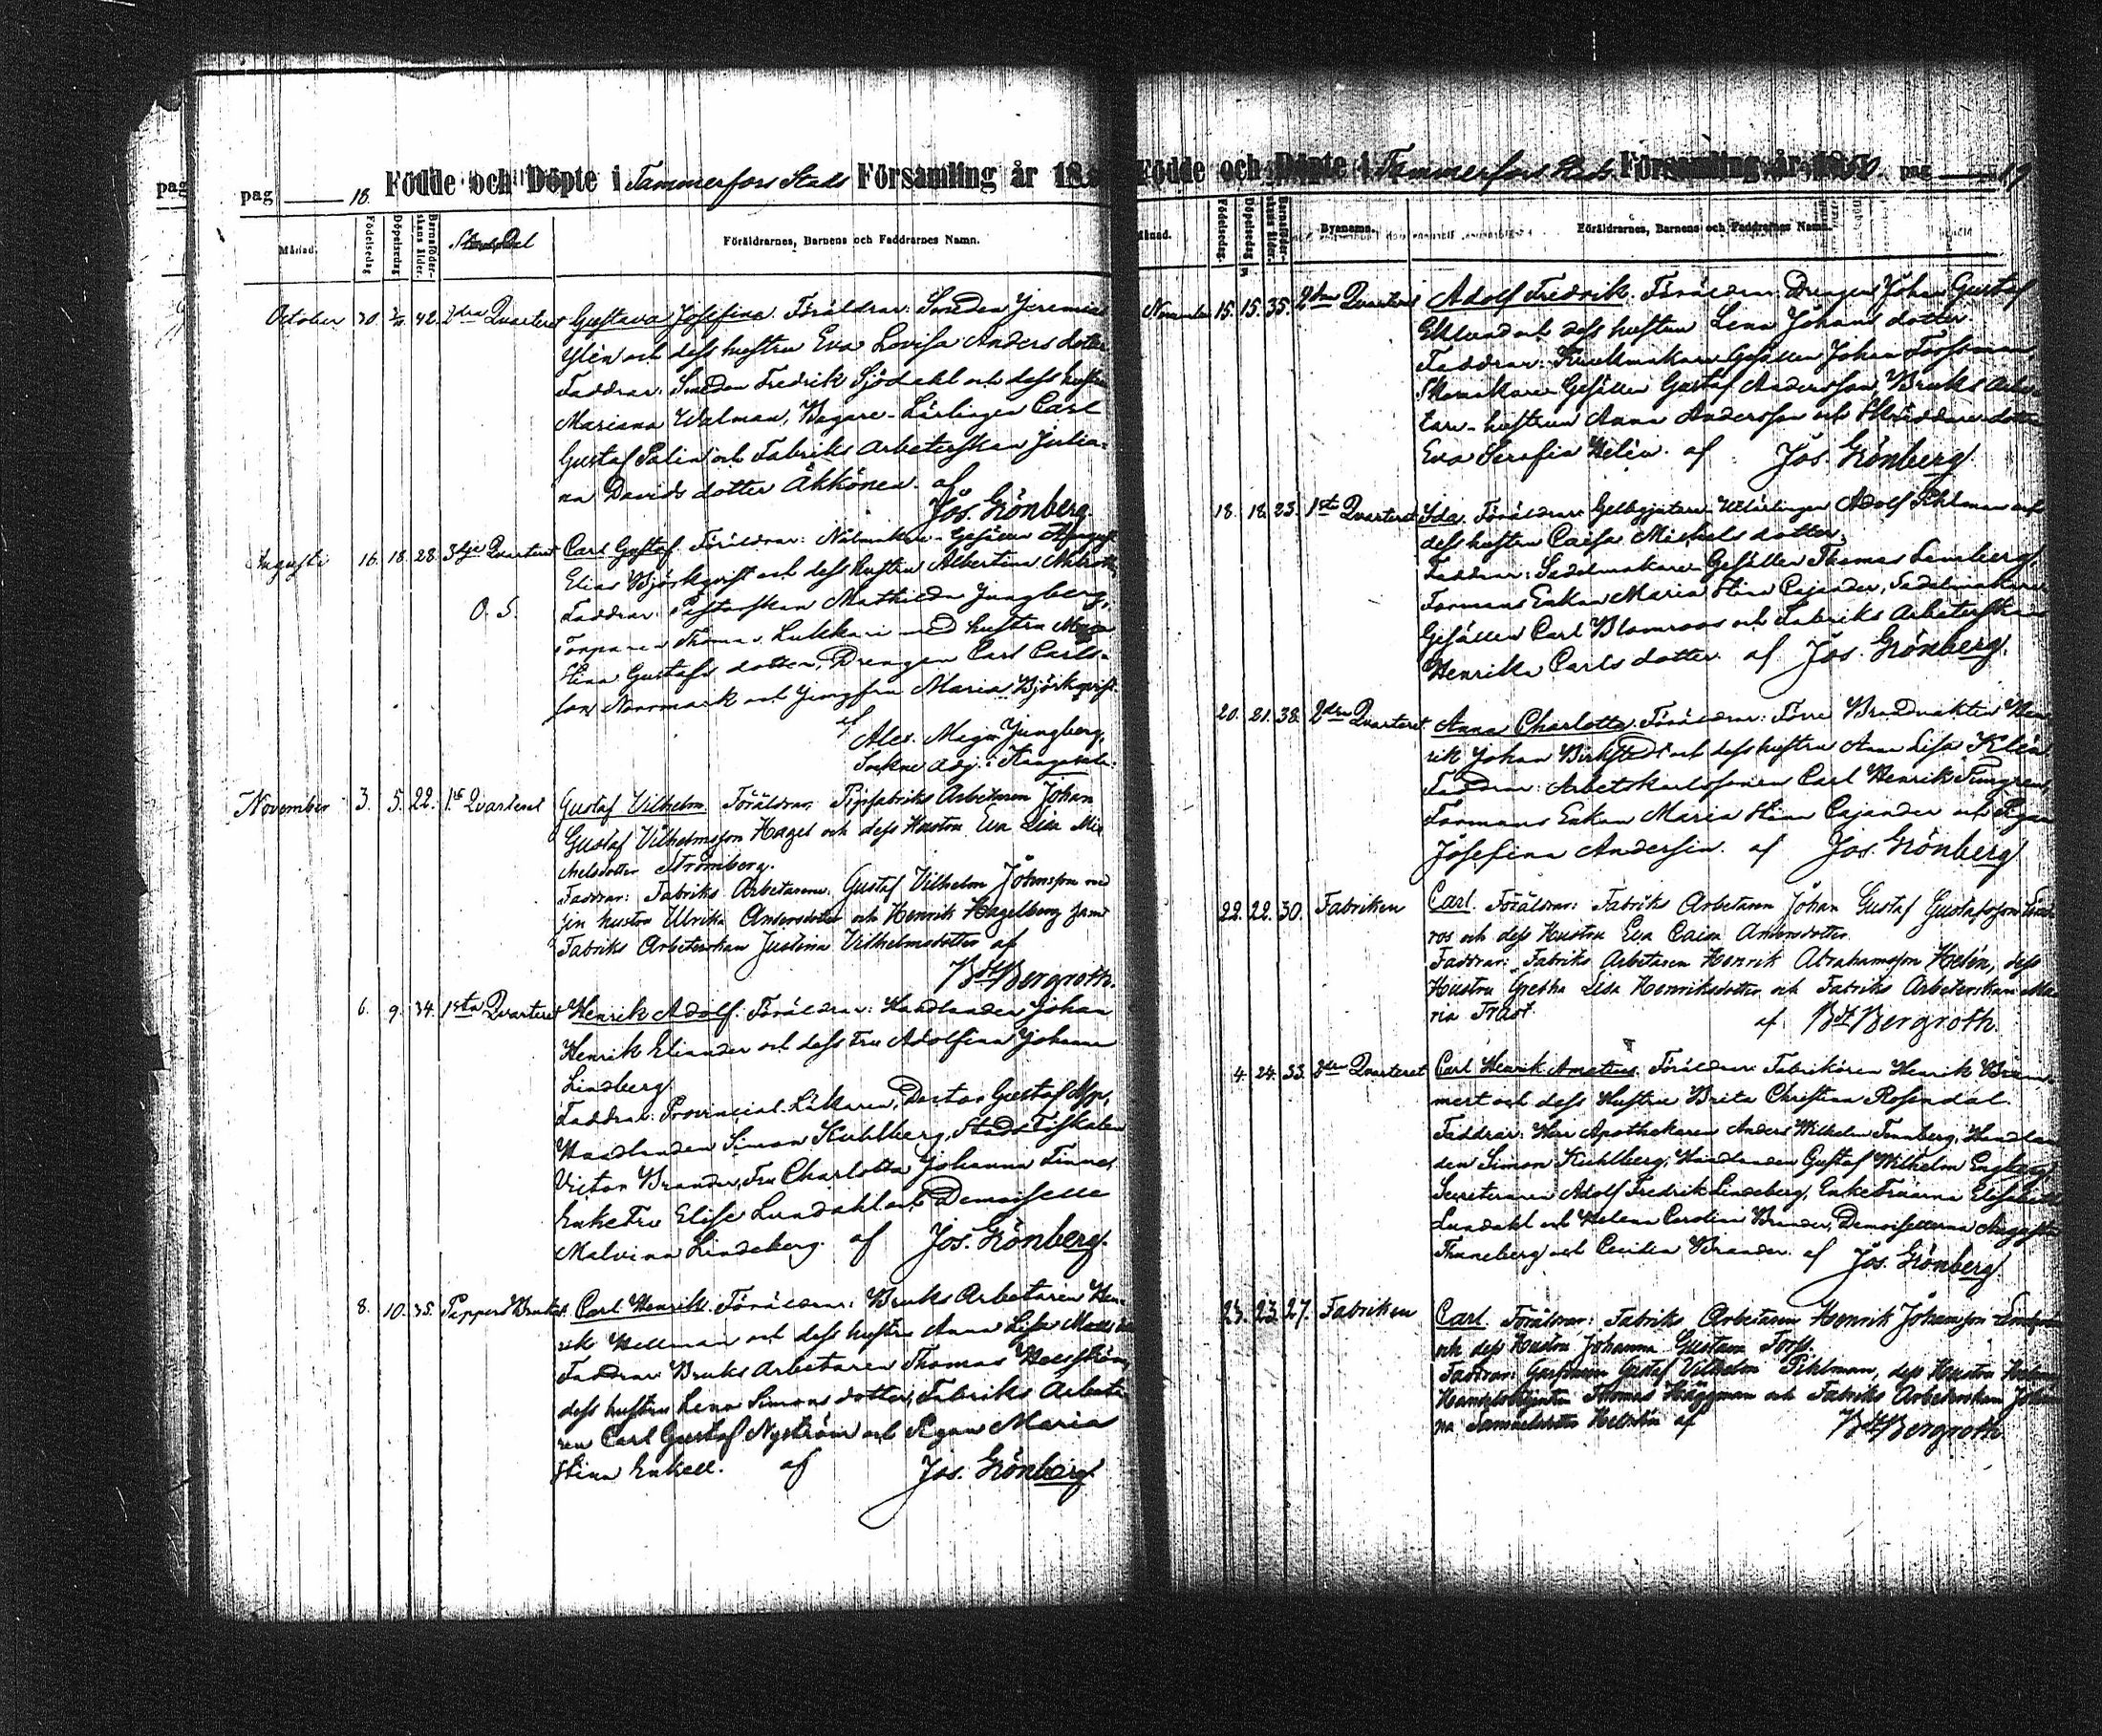 pag 18. Födde och Döpte i Tammerfors Stads Församling år 18
Månad. Födelsedag Döpelsedag Barnaföderskans ålder. Föräldrarnes, Barnens och Faddrarnes Namn.
October 30. 42. 2dra Quarteret Gustava Josefina. Föräldrar: Smeden Jeremias
Ylén och dess hustru Eva Lovisa Anders dotter
Faddrar: Smeden Fredrik Sjödahl och dess hustru
Mariana Walman, Bagare-Lärlingen Carl
Gustaf Palin och Fabriks Arbeterskan Julia-
na Davids dotter Äkkönen. af
Jos. Grönberg.
Augusti 16. 18. 28. 3dje Quarteret Carl Gustaf. Föräldrar: Gesällen
Elias Björkqvist och dess hustru Albertina
O. S. Faddrar: Pastorskan Mathilda Jungberg,
Torparen Thomas Lukkari med hustru Maja
Stina Gustafs dotter, Drengen Carl Carls-
son Norrmark och Jungfru Maria Björkqvist
af
Alex. Magn. Jungberg,
Sockne Adj. i Kangasala.
November 3. 5. 22. 1st Quarteret Gustaf Vilhelm. Föräldrar: Arbetaren Johan
Gustaf Vilhelmsson Hagel och dess Hustru Eva Lisa Mic
helsdotter Strömberg.
Faddrar: Fabriks Arbetarene: Gustaf Vilhelm Johansson med
sin hustru Ulrika Andersdotter och Henrik Hagelberg samt
Fabriks Arbeterskan Justina Vilhelmsdotter af
Bergroth.
6. 9. 34. 1sta Quarteret Henrik Adolf. Föräldrar: Handlanden Johan
Henrik Eliander och dess Fru Adolfina Johanna
Lindberg.
Faddrar: Provincial-Läkaren, Doctor Gustaf
Handlanden Simon Kuhlberg, Stads Fiskalen
Victor Brander, Fru Charlotta Johanna
EnkeFru Elise Lundahl och Demoiselle
Malvina Lindeberg. af Jos. Grönberg.
8. 10. 35. Pappers Bruket. Carl Henrik. Föräldrar: Bruks Arbetaren Hen-
rik Hellman och dess hustru Anna Lisa Matts
Faddrar: Bruks Arbetaren Thomas
dess hustru Lena Simons dotter, Fabriks Arbeta
ren Carl Gustaf Nyström och Pigan Maria
Stina Enkell. af Jos. Grönberg.
Födde och Döpte i Tammerfors Stads Församling år 1850. pag 19
Månad. Födelsedag. Döpelsedag Barnaföderskans ålder. Bynamn. Föräldrarnes, Barnens och Faddrarnes Namn.
November 15. 15. 35. 2dra Quarteret Adolf Fredrik. Föräldrar: Drengen Johan Gustaf
Eklund och dess hustru Lena Johans dotter.
Faddrar: Gesällen Johan Forssman,
Skomakare Gesällen Gustaf Andersson, Bruks Arbe-
tare-hustrun Anna Andersson och Skräddare-dotter
Eva Serafia Helén. af Jos. Grönberg.
18. 18. 23. 1sta Quarteret Ida. Föräldrar: Gelbgjutare Lärlingen Adolf Pihlman och
dess hustru Caisa Michels dotter.
Faddrar: Sadelmakare Gesällen Thomas
Formans Enkan Maria Stina Cajander, Sadelmakare
Gesällen Carl Blomroos och Fabriks Arbeterskan
Henrika Carls dotter. af Jos. Grönberg.
20. 21. 38. 2dra Quarteret Anna Charlotta. Föräldrar: Förre Brandvakten Hen
rik Johan Birkstedt och dess hustru Anna Lisa Klén.
Faddrar: Arbetskarlssonen Carl Henrik
Formans Enkan Maria Stina Cajander och Pigan
Josefina Andersin. af Jos. Grönberg
22. 22. 30. Fabriken Carl. Föräldrar: Fabriks Arbetaren Johan Gustaf Gustafsson
ros och dess Hustru Eva Caisa Andersdotter
Faddrar: Fabriks Arbetaren Henrik Abrahamsson Helén, dess
Hustru Gretha Lisa Henriksdotter och Fabriks Arbeterskan Ma
ria Trast. af Bergroth.
4. 24. 33. 2dra Quarteret Carl Henrik Amatus. Föräldrar: Fabrikören Henrik
mert och dess Hustru Brita Christina Rosendal.
Faddrar: Herr Apothekaren Anders Wilhelm Tennberg, Handlan
den Simon Kuhlberg, Handlanden Gustaf Wilhelm Engberg,
Secreteraren Adolf Fredrik Lindeberg, Enkefruarna Elisabeth
Lundahl och Helena Carolina Brander, Demoisellerna Augusta
Thuneberg och Cecilia Brander. af Jos. Grönberg
23. 23. 27. Fabriken Carl. Föräldrar: Fabriks Arbetaren Henrik Johansson
och dess Hustru Johanna Gustava Forss.
Faddrar: Gustaf Vilhelm Pihlman, dess Hustru
Thomas Häggman och Fabriks Arbeterskan Johan
na Samuelsdotter af Bergroth